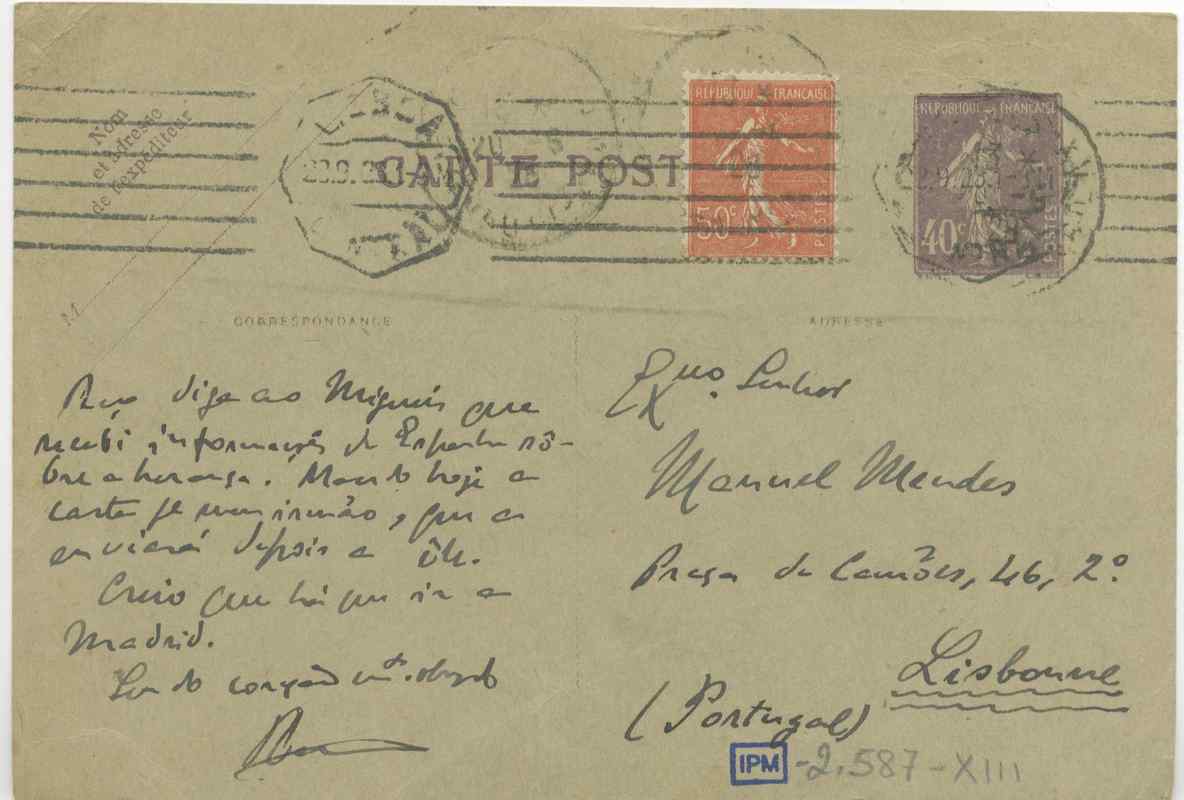 Nom
et adresse
de l'expéditeur
M
LISBOA
CARTE POST
RÉPUBLIQUE FRANÇAISE
50c
POSTES
RÉPUBLIQUE FRANÇAISE
40c
POSTES
CORRESPONDANCE
ADRESSE
diga ao que
recebi informações de Espanha sô-
bre a herança. Mando hoje a
carta meu irmão, que a
enviará depois a êle.
Creio que há que ir a
Madrid.
Seu do coração mto. obrgdo
Exmo. Senhor
Manuel Mendes
Praça de Camões, 46, 2º.
Lisbonne
(Portugal)
IPM -2.587-XIII